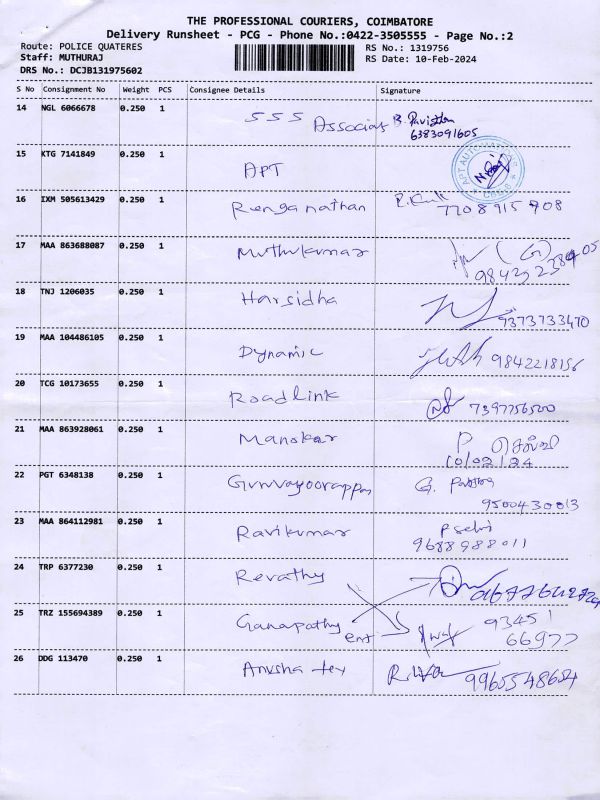 THE PROFESSIONAL COURIERS, COIMBATORE
Delivery Runsheet - PCG - Phone No.:0422-3505555 - Page No.:2
Route: POLICE QUATERES
RS No.: 1319756
Staff: MUTHURAJ
RS Date: 10-Feb-2024
DRS No.: DCJB131975602
S No Consignment No Weight PCS Consignee Details Signature
14 NGL 6066678 0.250 1 SSS Associas B.
6383091605
15 KTG 7141849 0.250 1 APT
16 IXM 505613429 0.250 1 Renganathan
7708915708
17 MAA 863688087 0.250 1 Muthukumar
18 TNJ 1206035 0.250 1 Harsidha 9373733470
19 MAA 104486105 0.250 1 Dynamic 9842218156
20 TCG 10173655 0.250 1 Roadlink 7397756500
21 MAA 863928061 0.250 1 Manokar P செல்வி
10/02/24
22 PGT 6348138 0.250 1 Guruvayoorappan G.
9500430013
23 MAA 864112981 0.250 1 Ravikumar P selvi
9688988011
24 TRP 6377230 0.250 1 Revathy
25 TRZ 155694389 0.250 1 Ganapathy ent 93451
66977
26 DDG 113470 0.250 1 Anusha tex 9965548654